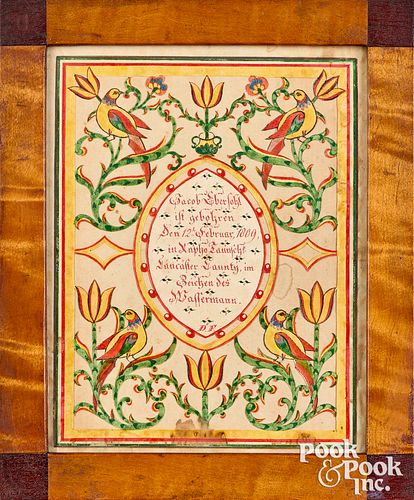 Jacob Ebersohl
ist gebohren
Den 12t Februar, 1809
in Rapho Taunscht
Lancaster Caunty, im
Zeichen des
Wassermann.
D.P.
Pook
& Pook
Inc.